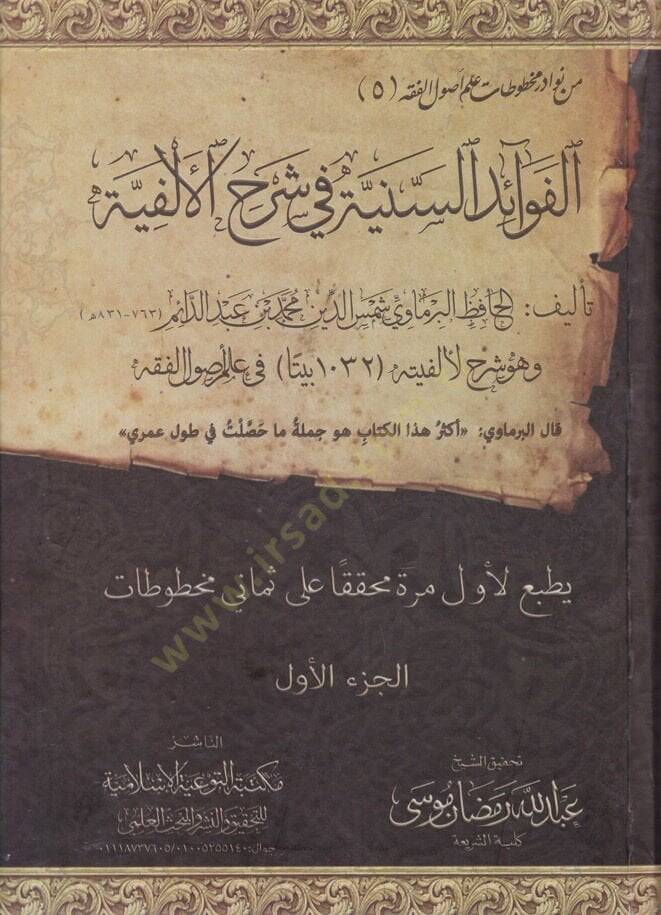 من نوادر مخطوطات علم أصول الفقه (٥)
الفوائد السنية في شرح الألفية
تأليف: الحافظ البرماوي شمس الدين محمد بن عبد الدائم (٧٦٣-٨٣١ه)
وهو شرح لألفيته (١٠٣٢ بيتا) في علم أصول الفقه
قال البرماوي: «أكثرُ هذا الكتابِ هو جملةُ ما حَصَّلْتُ في طول عمري»
يطبع لأول مرة محققًا على ثماني مخطوطات
الجزء الأول
تحقيق الشيخ
عبد الله رمضان موسى
كلية الشريعة
الناشر
مكتبة التوعية الإسلامية
للتحقيق والنشر والبحث العلمي
جوال: ٠١٠٠٥٢٥٥١٤٠/٠١١١٨٧٣٧٦٠٥
www.irsad